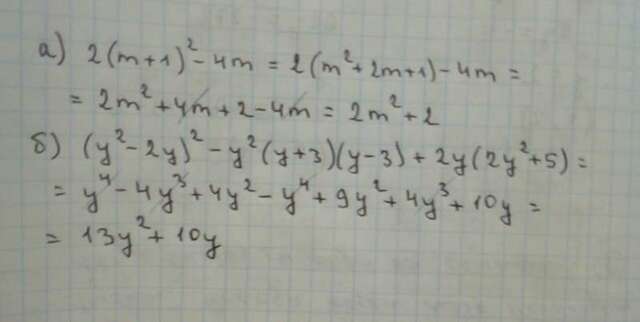 а) 2(m+1)² - 4m = 2(m² + 2m + 1) - 4m =
= 2m² + 4m + 2 - 4m = 2m² + 2
б) (y² - 2y)² - y²(y+3)(y-3) + 2y(2y² + 5) =
= y⁴ - 4y³ + 4y² - y⁴ + 9y² + 4y³ + 10y =
= 13y² + 10y